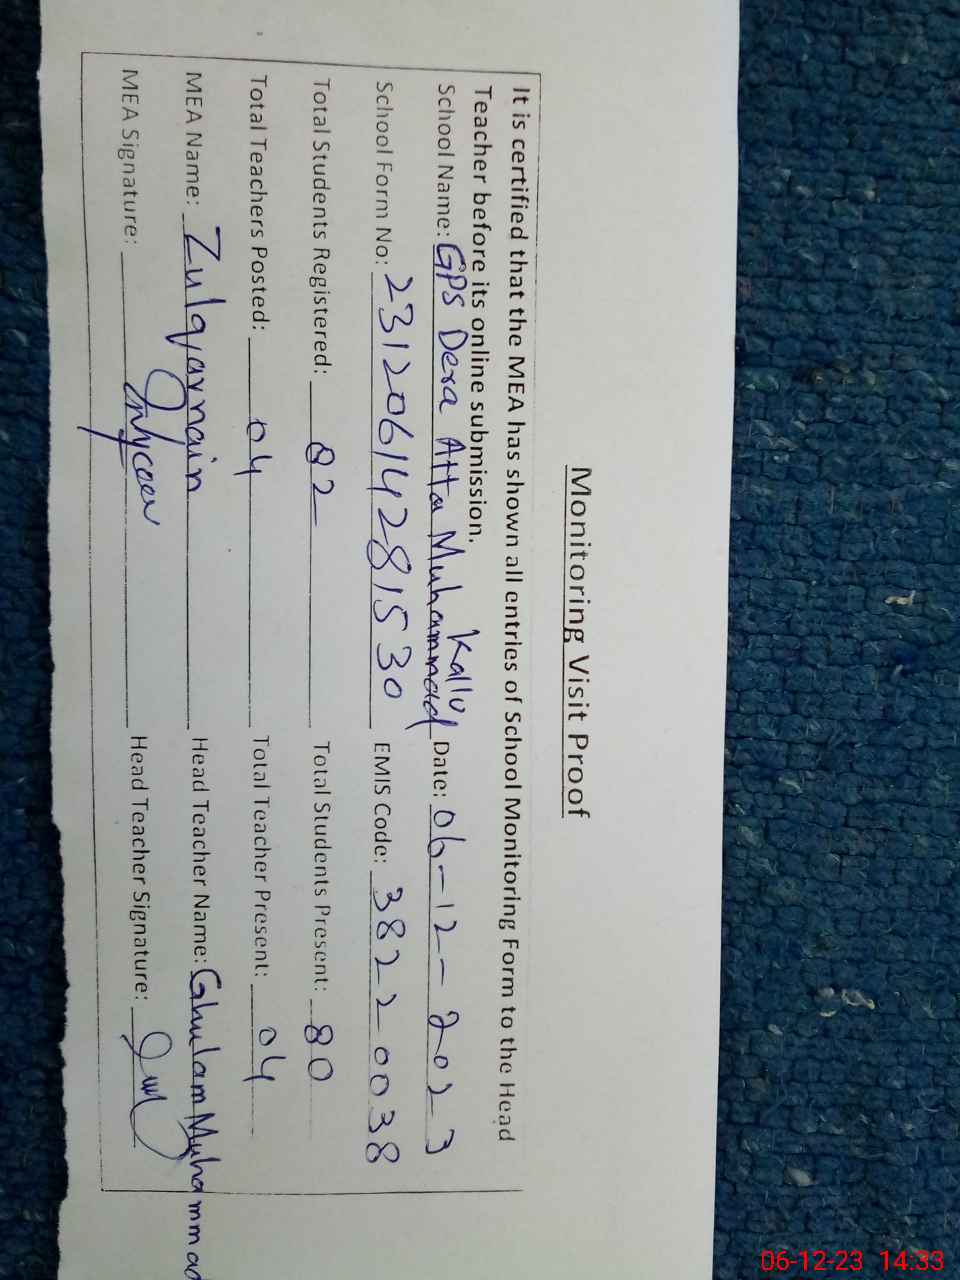 Monitoring Visit Proof
It is certified that the MEA has shown all entries of School Monitoring Form to the Head
Teacher before its online submission.
School Name: GPS Dera Atta Muhammad Kallu Date: 06-12-2023
School Form No: 23120614281530 EMIS Code: 38220038
Total Students Registered: 82 Total Students Present: 80
Total Teachers Posted: 04 Total Teacher Present: 04
MEA Name: Zulqarnain Head Teacher Name: Ghulam Muhammad
MEA Signature: Head Teacher Signature:
06-12-23 14:33